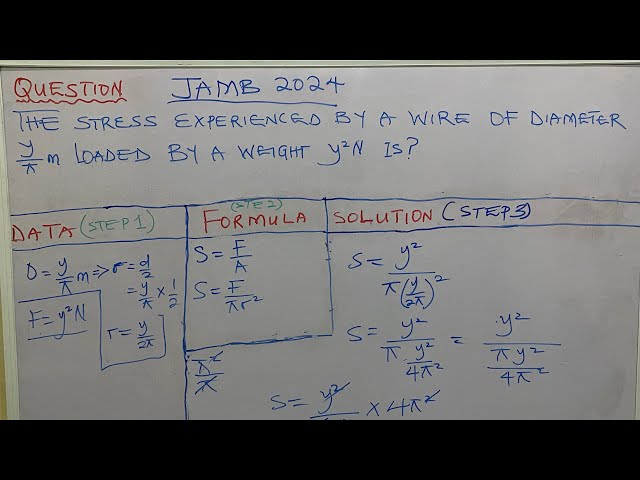 QUESTION JAMB 2024
THE STRESS EXPERIENCED BY A WIRE OF DIAMETER
y/π m LOADED BY A WEIGHT y²N IS?
DATA (STEP 1)
D = y/π m => r = d/2
= y/π × 1/2
F = y²N
r = y/2π
(STEP 2)
FORMULA
S = F/A
S = F/πr²
π²/π
SOLUTION (STEP 3)
S = y²/π(y/2π)²
S = y²/π y²/4π² = y²/πy²/4π²
S = y²/ × 4π²